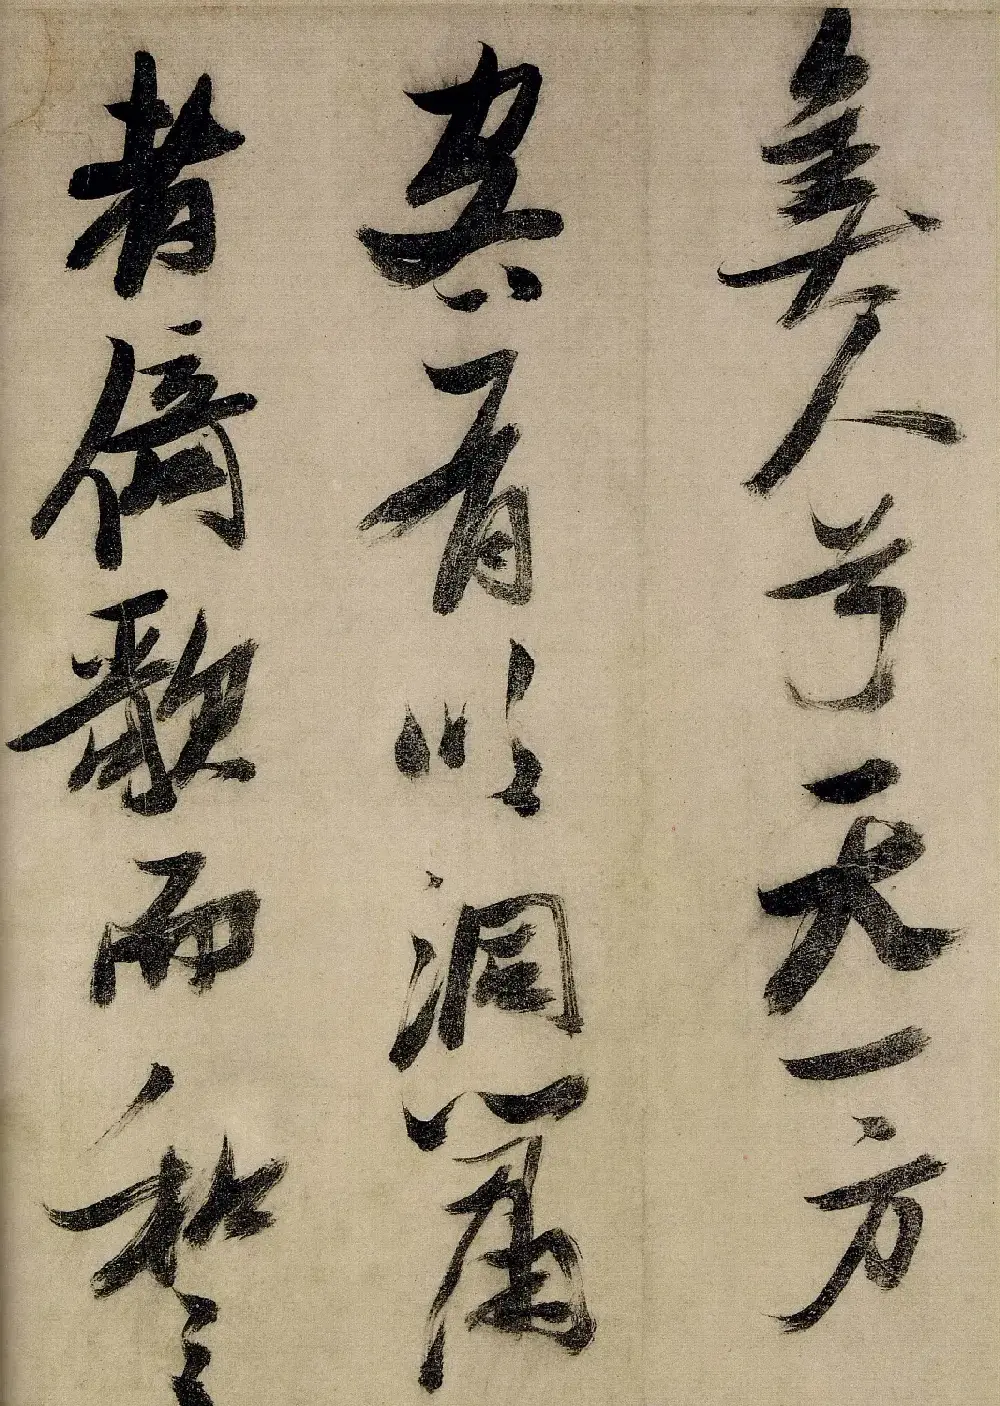 美人兮天一方
客有吹洞簫
者倚歌而和之